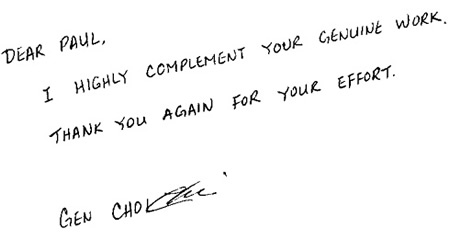 DEAR PAUL,
I HIGHLY COMPLEMENT YOUR GENUINE WORK.
THANK YOU AGAIN FOR YOUR EFFORT.
GEN CHO